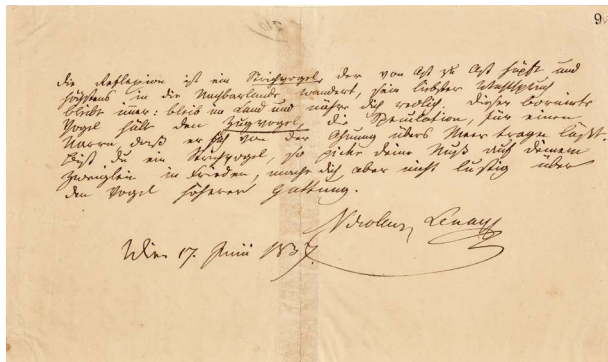 9.
Die Reflexion ist ein Strichvogel, der von Ast zu Ast hüpft und
höchstens in die Nachbarlande wandert, sein liebster Wahlspruch
bleibt immer: bleib im Land und nähre dich redlich. Dieser bornirte
Vogel hält den Zugvogel, die Speculation, für einen
Narren, daß er sich von der Ahnung übers Meer tragen läßt.
Bist du ein Strichvogel, so picke deine Nuß auf deinem
Zweiglein in Frieden, mache dich aber nicht lustig über
den Vogel höherer Gattung.
Nicolaus Lenau
Wien 17. Juni 1837.